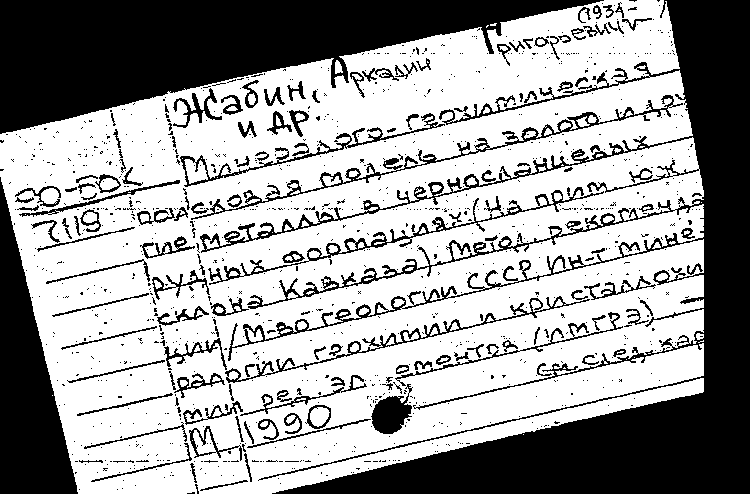 (1934-
Жабин, Аркадий Григорьевич
и др.
Минералого-геохимическая
90-50к поисковая модель на золото и дру
7119 гие металлы в черносланцевых
рудных формациях: (На прим. Юж.
склона Кавказа): Метод. рекоменда
ции / М-во геологии СССР, Ин-т мине-
ралогии, геохимии и кристаллохи
мии ред. элементов (ИМГРЭ) —
М., 1990 см. след. кар